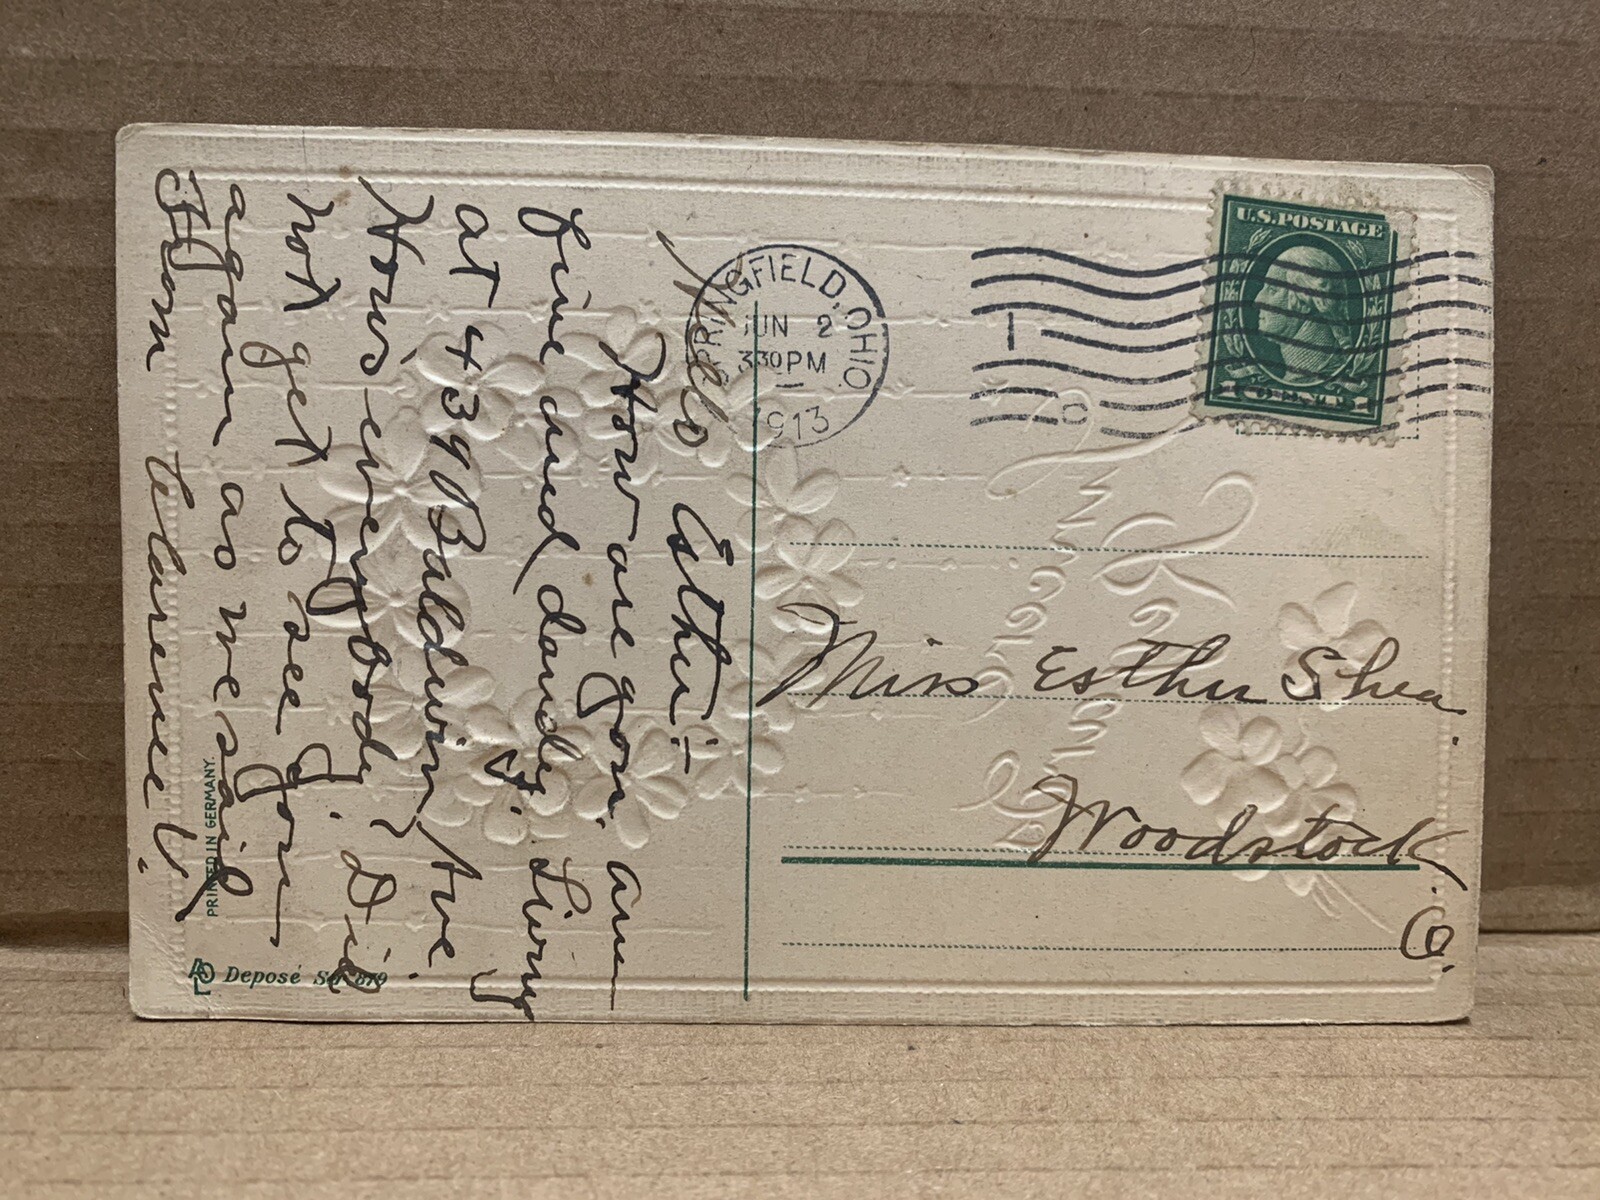 Hello Esther:-
How are you. am
fine and dandy. Living
at 439 Baldwin Ave.
How's everybody? Did
not get to see you
again as we said
From Clarence V.
SPRINGFIELD, OHIO.
JUN 2
330 PM
1913
1
U.S. POSTAGE
1 CENT 1
Miss Esther Shea.
Woodstock,
O.
PRINTED IN GERMANY.
Deposé Ser 879